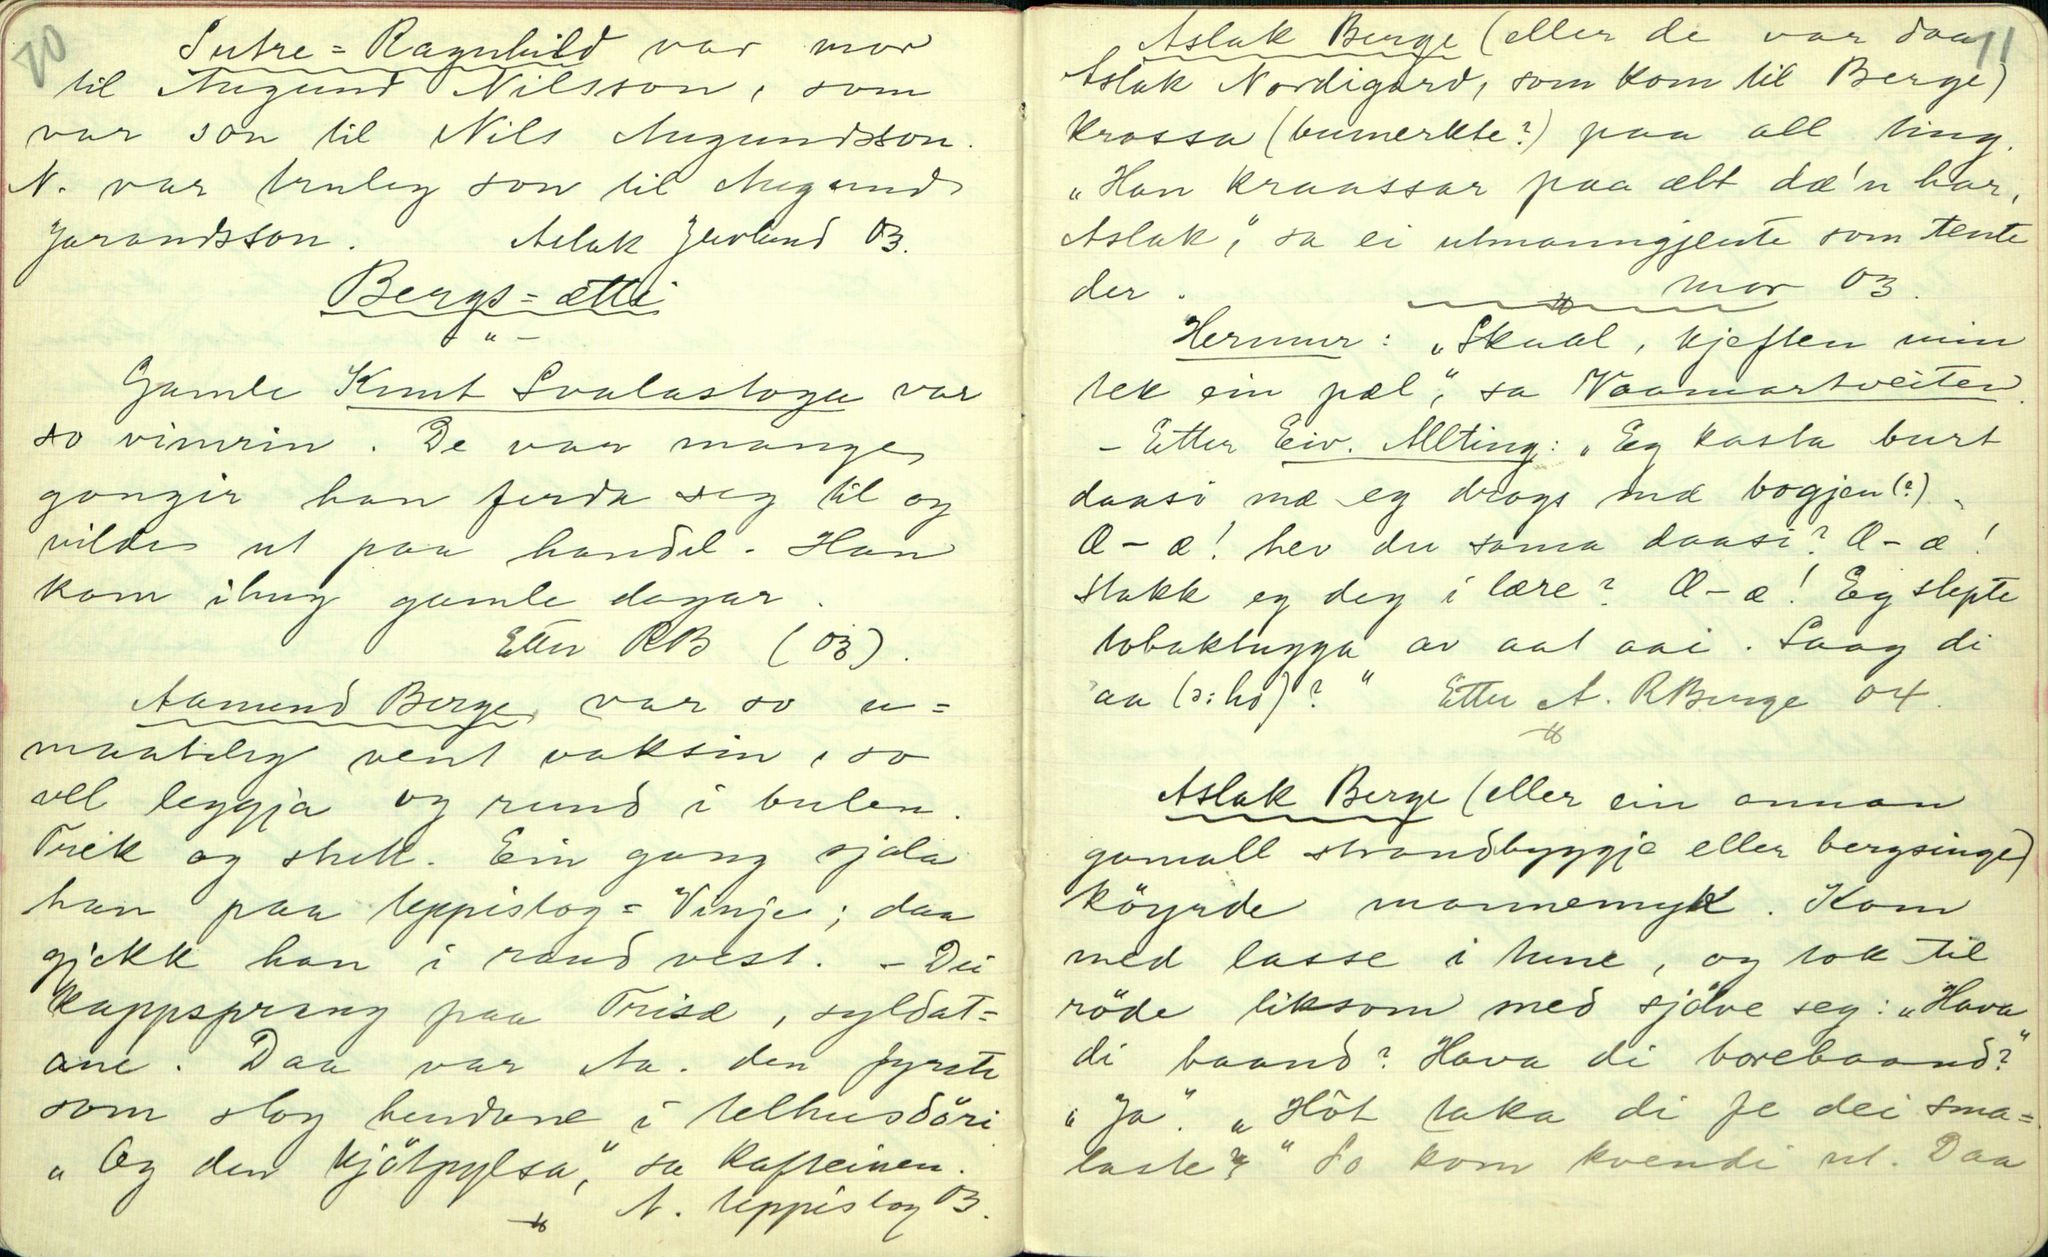 70
Sutre=Ragnhild var mor
til Augund Nilsson, som
var son til Nils Augundsson.
N. var truleg son til Augund
Jarandsson. Aslak Juvlund 03.
Bergs=ætti
- " -
Gamle Knut Svalastoga var
so vimrin. De var mange
gongir han ferda seg til og
vilde ut paa handel. Han
kom ihug gamle dagar.
Etter RB (03).
Aamund Berge var so u=
maateleg vent vaksin, so
vel leggja og rund i bulen.
Trek og sterk. Ein gang sjala
han paa Uppistog=Vinje; daa
gjekk han i raud vest. - Dei
kappsprang paa Trisæ, syldat=
ane. Daa var Aa. den fyrste
som slog hendane i telhusdöri
„Og den kjötpylsa," sa kafteinen.
N. Uppistog 03.
11
Aslak Berge (eller de var daa
Aslak Nordigard, som kom til Berge)
krossa (bumerkte?) paa all ting.
„Han kraassar paa ælt dæ'n har,
Aslak," sa ei utmanngjente som tente
der. mor 03.
Hermur: „Skaal, kjeften min
tek ein pæl," sa Vaamartveiten.
- Etter Eiv. Allting: „Eg kasta burt
daasi mæ eg drogs mæ bogjen(?).
Æ-æ! hev du soma daasi? Æ-æ!
Stakk eg deg i lære? Æ-æ! Eg slepte
tobaktugga or aat aai. Saag di
aa (ɔ: ho)?" Etter A. RBerge 04.
Aslak Berge (eller ein annan
gamall strandbyggje eller bergsinge)
köyrde mannemyk. Kom
med lasse i tune, og tok til
röde liksom med sjölve seg: „Hava
di baand? Hava di borebaand?"
„Ja". „Hôt taka di fe dei sma=
laste?" So kom kvendi ut. Daa